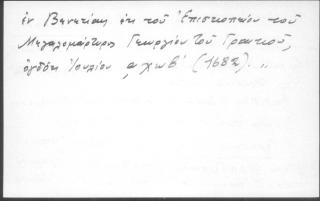 ἐν Βενετίαις ἐκ τοῦ Ἐπισκοπείου τοῦ
Μεγαλομάρτυρος Γεωργίου τοῦ Γραικοῦ,
ὀγδόῃ Ἰουλίου αχπβ' (1682).